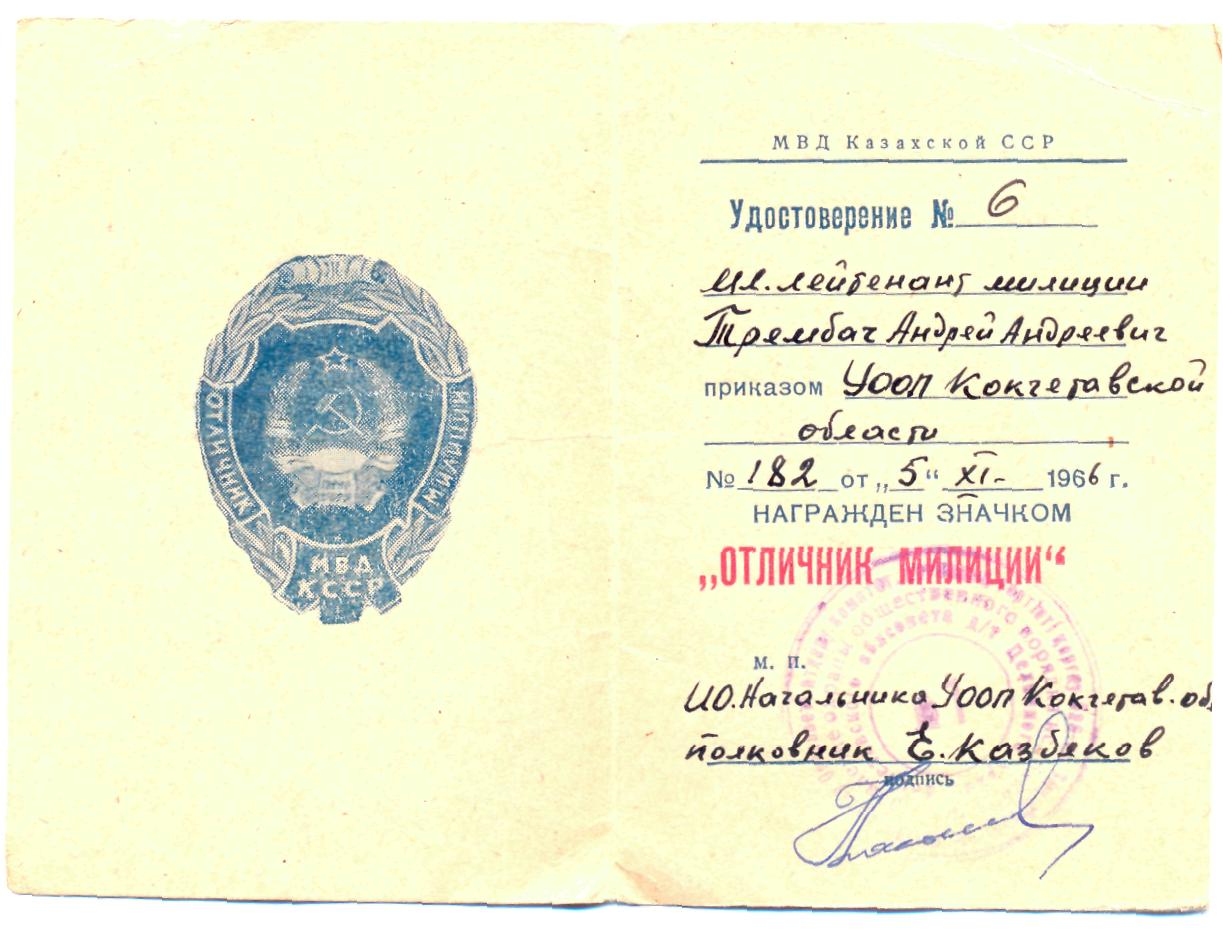 ОТЛИЧНИК
МИЛИЦИИ
МВД
КССР
МВД Казахской ССР
Удостоверение № 6
Мл. лейтенант милиции
Трембач Андрей Андреевич
приказом УООП Кокчетавской
области
№ 182 от „5“ XI- 1966 г.
НАГРАЖДЕН ЗНАЧКОМ
„ОТЛИЧНИК МИЛИЦИИ“
общественного порядка
облсовета д/т
м. п.
ИО. Начальника УООП Кокчетав. об
полковник Е. Казбеков
подпись